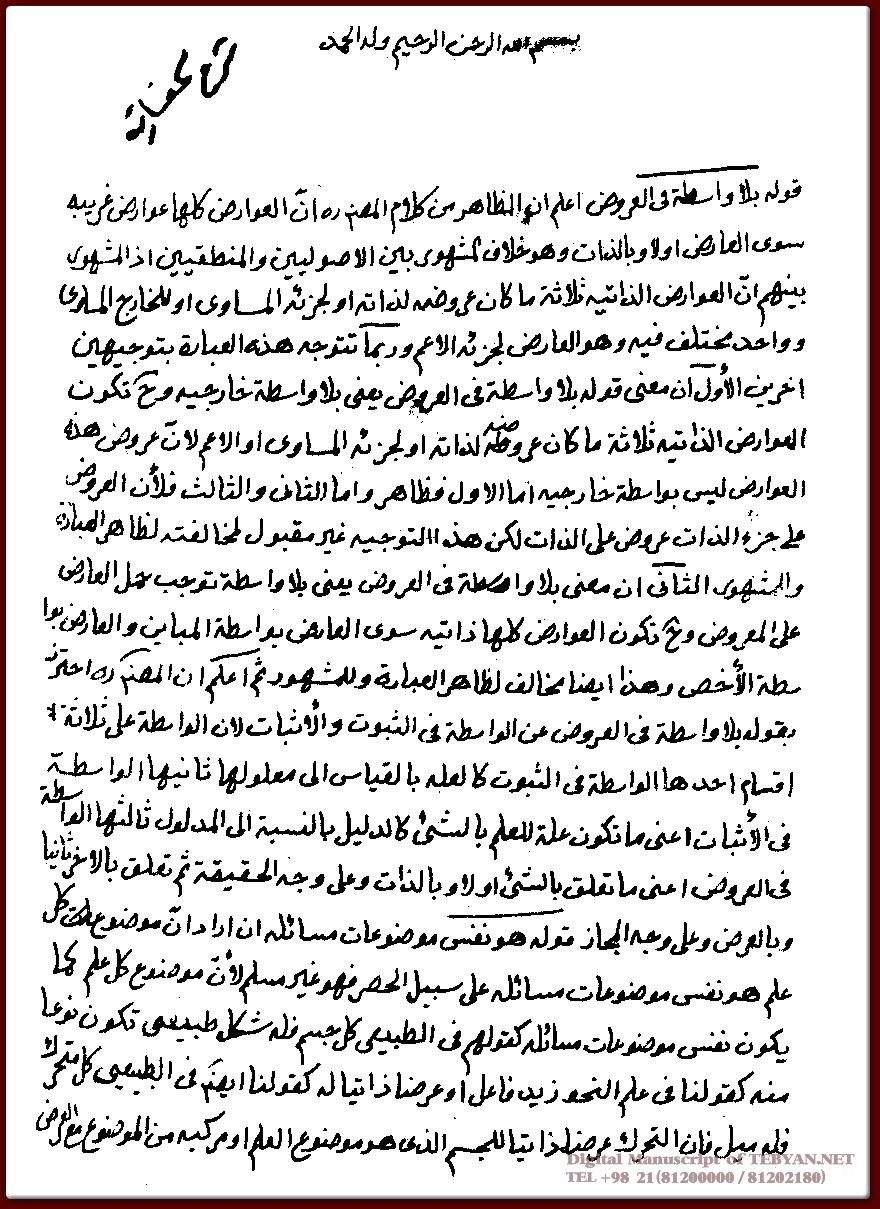 بسم الله الرحمن الرحيم وله الحمد
شرح كفاية
قوله بلا واسطة فى العروض اعلم ان الظاهر من كلام المصنف ره انّ العوارض كلها عوارض غريبه
سوى العارض اولا وبالذات وهو خلاف المشهور بين الاصوليين والمنطقيين اذ المشهور
بينهم انّ العوارض الذاتيه ثلاثة ما كان عروضه لذاته او لجزئه المساوى او للخارج المساوى
وواحد مختلف فيه وهو العارض لجزئه الاعم وربما تتوجه هذه العبارة بتوجيهين
اخرين الأول ان معنى قوله بلا واسطة فى العروض يعنى بلا واسطة خارجيه وح تكون
العوارض الذاتيه ثلاثة ما كان عروضه لذاته او لجزئه المساوى او الاعم لانّ عروض هذه
العوارض ليس بواسطة خارجيه اما الاول فظاهر واما الثانى والثالث فلأن العروض
على جزء الذات عروض على الذات لكن هذا التوجيه غير مقبول لمخالفته لظاهر العبارة
والمشهور الثانى ان معنى بلا واسطة فى العروض يعنى بلا واسطة توجب حمل العارض
على المعروض وح تكون العوارض كلها ذاتيه سوى العارض بواسطة المباين والعارض بوا
سطة الأخص وهذا ايضا مخالف لظاهر العبارة وللمشهور ثم اعلم ان المصنف ره احترز
بقوله بلا واسطة فى العروض عن الواسطة فى الثبوت والأثبات لان الواسطة على ثلاثة
اقسام احدها الواسطة فى الثبوت كالعله بالقياس الى معلولها ثانيها الواسطة
فى الأثبات اعنى ما تكون علة للعلم بالشئ كالدليل بالنسبة الى المدلول ثالثها الواسطة
فى العروض اعنى ما تعلق بالشئ اولا وبالذات وعلى وجه الحقيقة ثم تعلق بالاخر ثانيا
وبالعرض وعلى وجه المجاز قوله هو نفس موضوعات مسائله ان اراد انّ موضوع كل
علم هو نفس موضوعات مسائله على سبيل الحصر فهو غير مسلم لأنّ موضوع كل علم كما
يكون نفس موضوعات مسائله كقولهم فى الطبيعى كل جسم فله شكل طبيعى تكون نوعا
منه كقولنا فى علم النحو زيد فاعل او عرضا ذاتيا له كقولنا ايضا فى الطبيعى كل متحرك
فله ميل فان التحرك عرضا ذاتيا للجسم الذى هو موضوع العلم او مركبه من الموضوع مع العرض
Digital Manuscript of TEBYAN.NET
TEL +98 21(81200000 / 81202180)